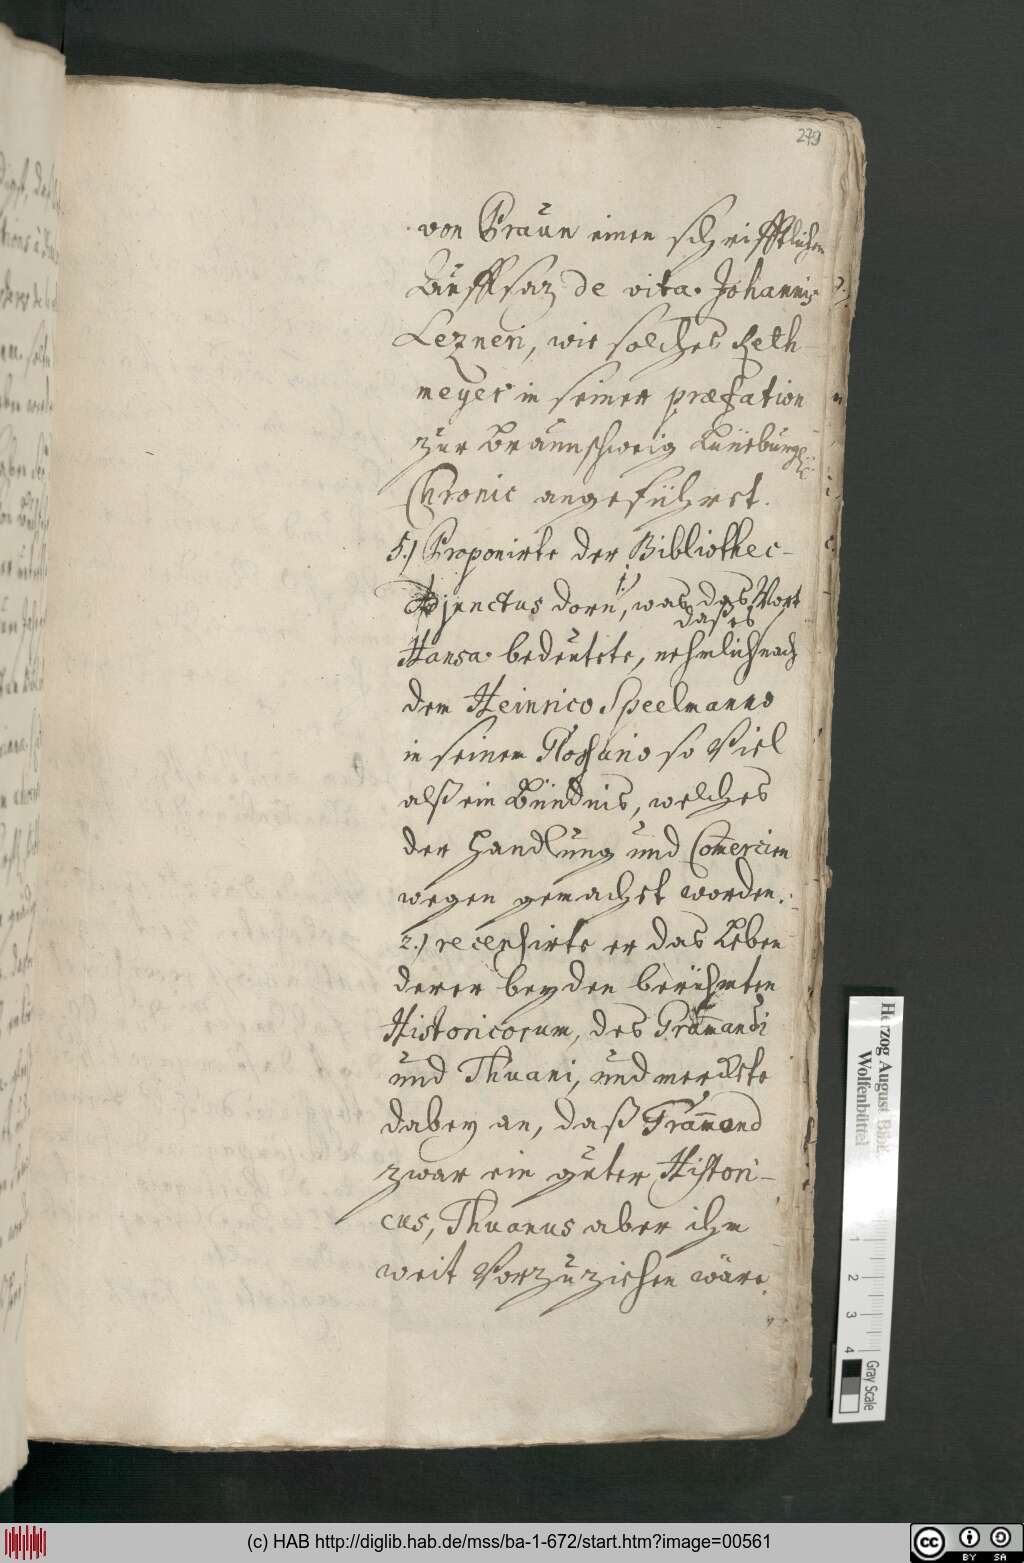 279
von Praun einen schrifftlichen
Auffsaz de vita Johannis
Lezneri, wie solches Reth-
meyer in seiner præfation
zur Braunschweig Lüneburg
Chronic angeführet.
5.) Proponirte der Bibliothec-
Adjunctus Dorn, 1) was das Wort
daß es
Hansa bedeutete, nehmlich nach
dem Heinrico Speelmanno
in seinem Glossario so Viel
alß ein Bündnis, welches
der Handlung und Com̅ercien
wegen gemacht worden.
2.) recensirte er das Leben
derer beyden berühmten
Historicorum, des Gram̅andi
und Thuani, und merckte
dabey an, daß Gram̅ond
zwar ein guter Histori-
cus, Thuanus aber ihm
weit Vorzuziehen wäre.
Herzog August Bibl.
Wolfenbüttel
1
2
3
4
Gray Scale
(c) HAB http://diglib.hab.de/mss/ba-1-672/start.htm?image=00561
cc BY SA